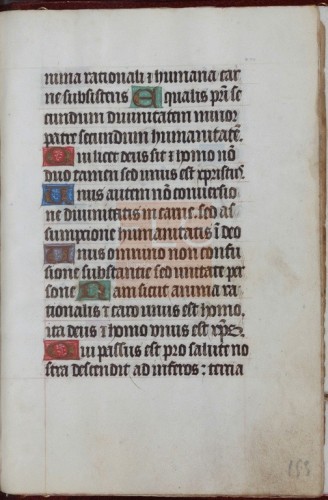 nima rationali ⁊ humana car
ne subsistens Equalis pr̃i se
cundum diuinitatem minor
patre secundum humanitatẽ.
Qui licet deus sit ⁊ homo nõ
duo tamen sed unus est xp̃istus
Unus autem nõ conuersio
ne diuinitatis in carne. sed as
sumpcione humanitatis ĩ deo
Unus omnino non confu
sione substancie sed unitate per
sone Nam sicut anima ra
tionalis ⁊ caro unus est homo.
ita deus ⁊ homo vnus est xp̃s
Qui passus est pro salute no
stra descendit ad inferos: tercia
155